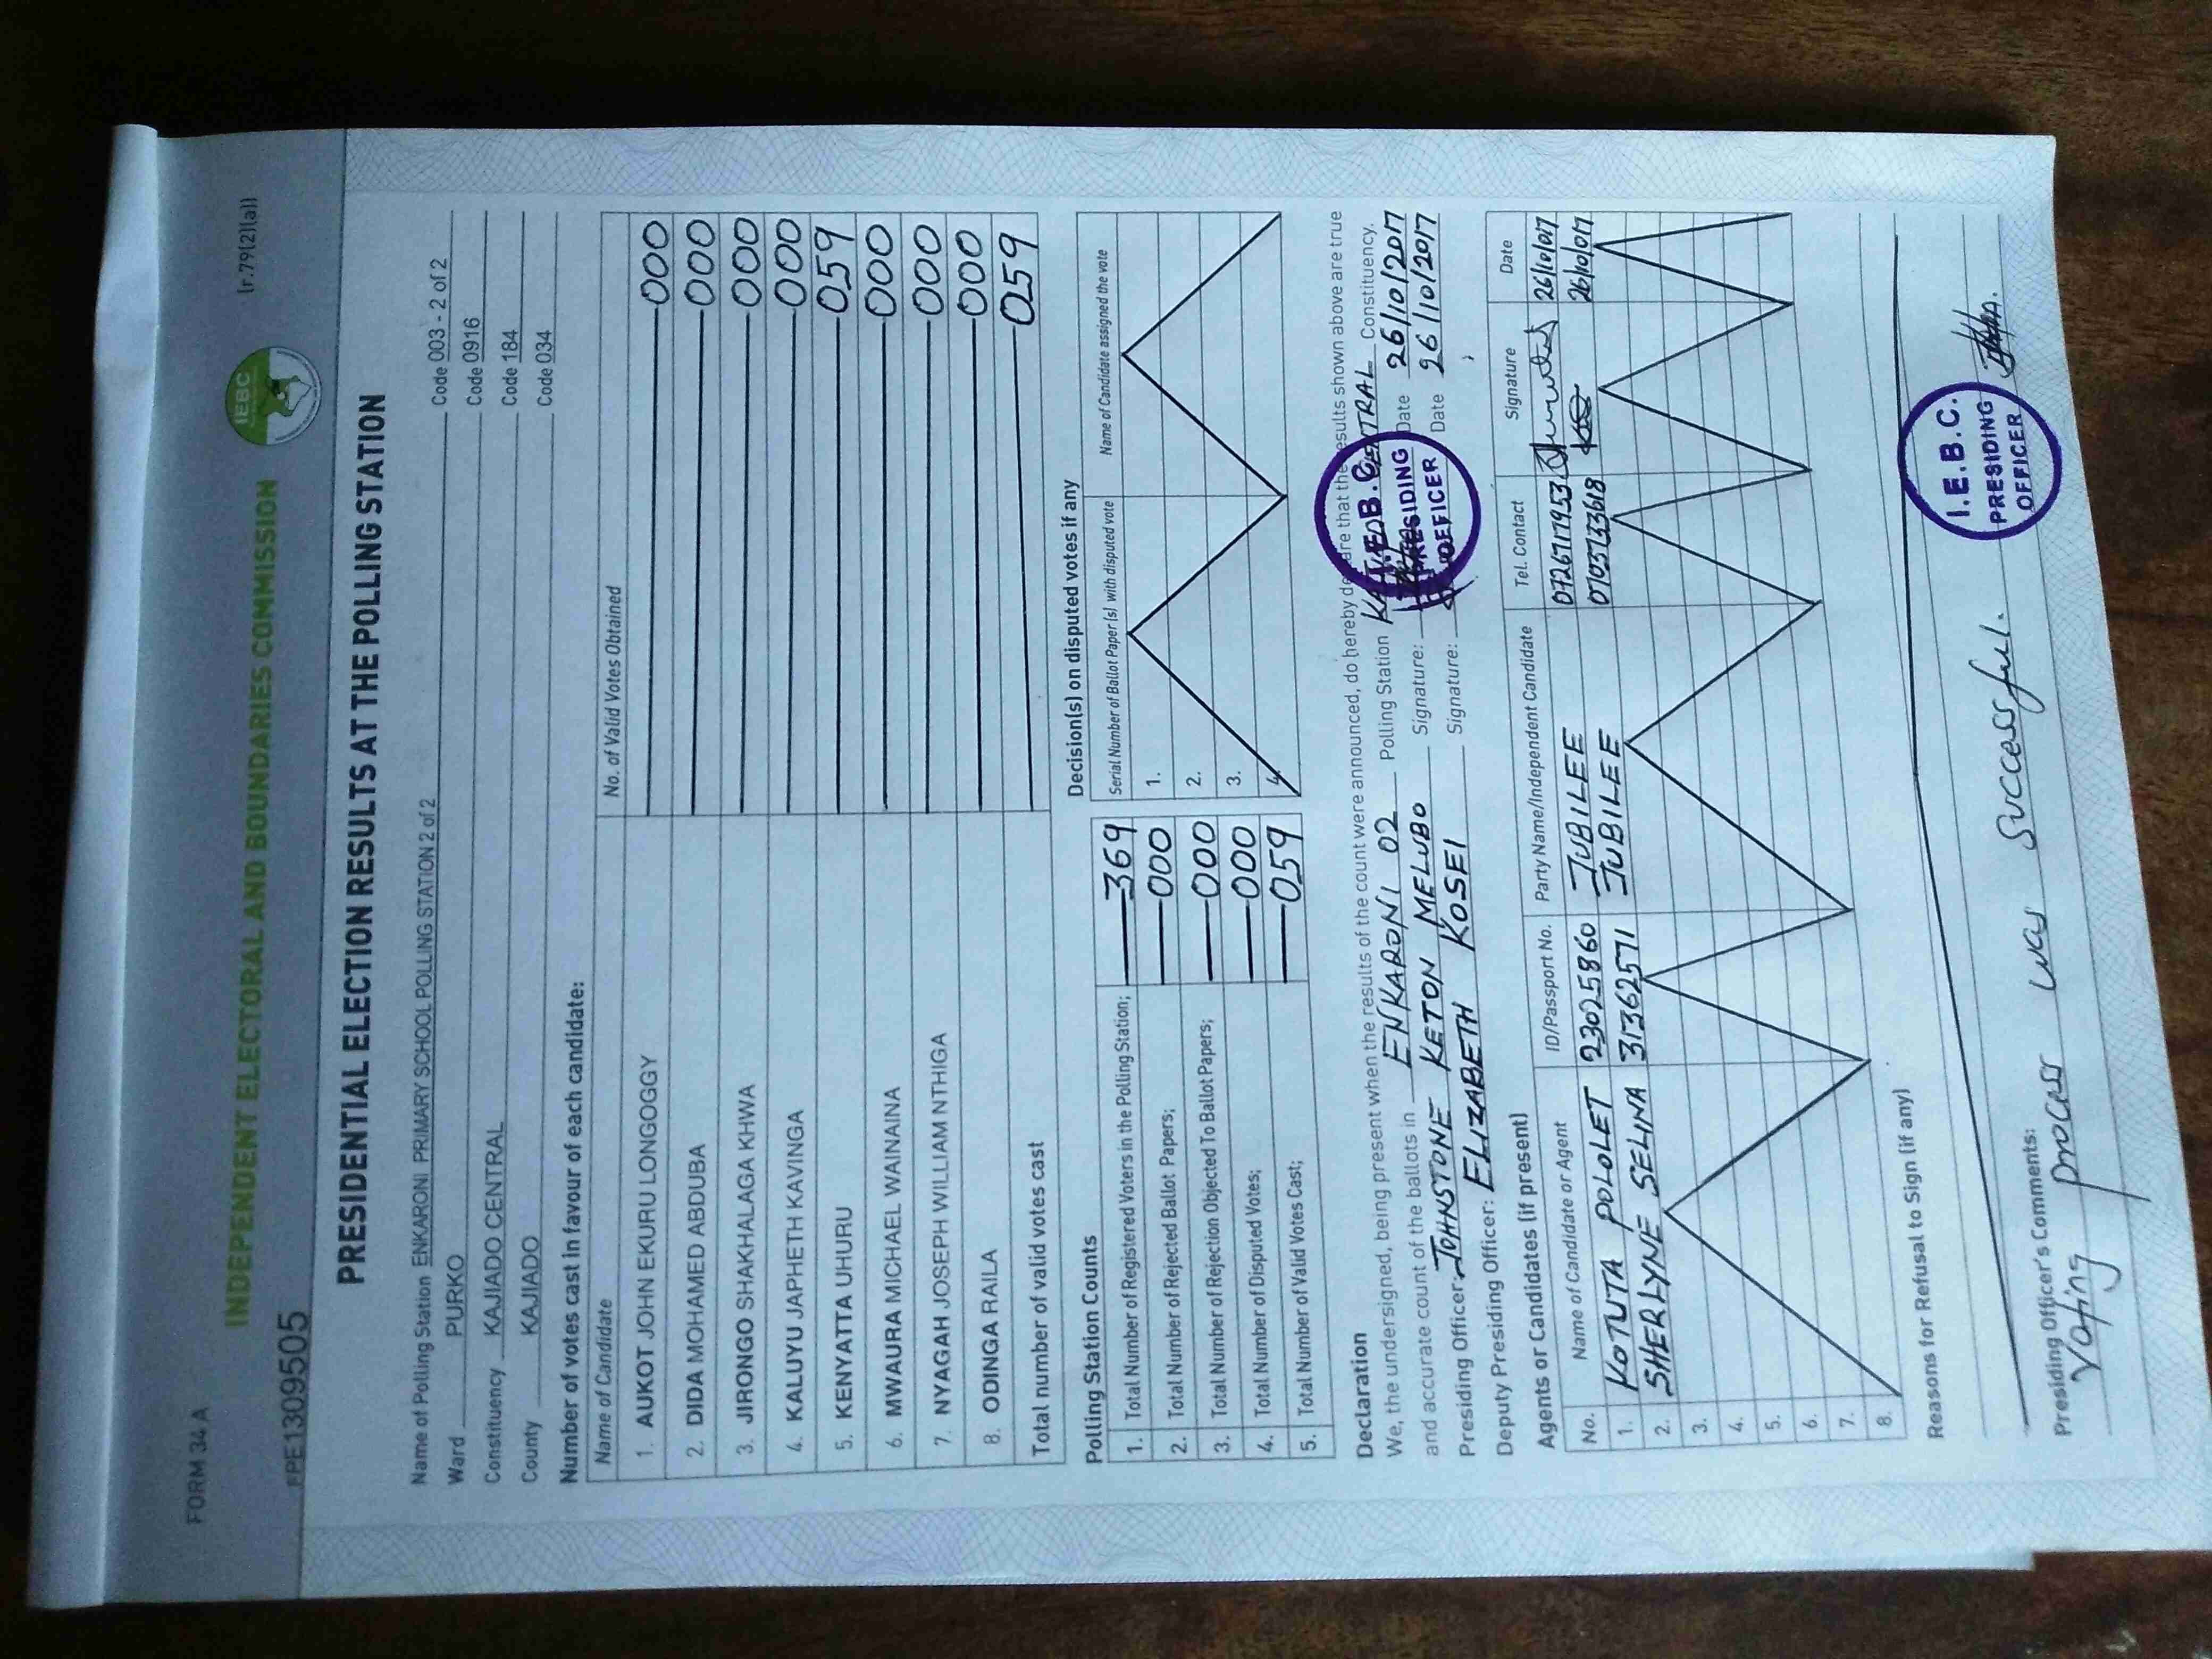 FORM 34 A
(r.79(2)(a))
INDEPENDENT ELECTORAL AND BOUNDARIES COMMISSION
IEBC
PRESIDENTIAL ELECTION RESULTS AT THE POLLING STATION
Name of Polling Station ENKARONI PRIMARY SCHOOL POLLING STATION 2 of 2 Code 003 - 2 of 2
Ward PURKO Code 0916
Constituency KAJIADO CENTRAL Code 184
County KAJIADO Code 034
Number of votes cast in favour of each candidate:
Name of Candidate No. of Valid Votes Obtained
1. AUKOT JOHN EKURU LONGOGGY 000
2. DIDA MOHAMED ABDUBA 000
3. JIRONGO SHAKHALAGA KHWA 000
4. KALUYU JAPHETH KAVINGA 000
5. KENYATTA UHURU 059
6. MWAURA MICHAEL WAINAINA 000
7. NYAGAH JOSEPH WILLIAM NTHIGA 000
8. ODINGA RAILA 000
Total number of valid votes cast 059
Polling Station Counts
1. Total Number of Registered Voters in the Polling Station; 369
2. Total Number of Rejected Ballot Papers; 000
3. Total Number of Rejection Objected To Ballot Papers; 000
4. Total Number of Disputed Votes; 000
5. Total Number of Valid Votes Cast; 059
Decision(s) on disputed votes if any
Serial Number of Ballot Paper (s) with disputed vote Name of Candidate assigned the vote
1.
2.
3.
4.
Declaration
We, the undersigned, being present when the results of the count were announced, do hereby declare that the results shown above are true
and accurate count of the ballots in ENKARONI 02 Polling Station CENTRAL Constituency.
Presiding Officer: JOHNSTONE KETON MELUBO Signature: Date 26/10/2017
Deputy Presiding Officer: ELIZABETH KOSEI Signature: Date 26/10/2017
I.E.B.C.
PRESIDING
OFFICER
Agents or Candidates (if present)
No. Name of Candidate or Agent ID/Passport No. Party Name/Independent Candidate Tel. Contact Signature Date
1. KOTUTA POLOLET 23025860 JUBILEE 0726717953
2. SHERLYNE SELINA 31362571 JUBILEE
3.
4.
5.
6.
7.
8.
Reasons for Refusal to Sign (if any)
Presiding Officer's Comments:
Voting process was successful.
I.E.B.C.
PRESIDING
OFFICER